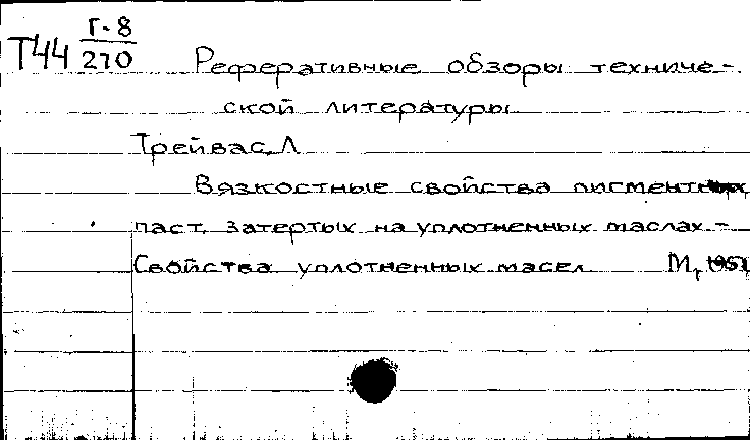 Т44 Г-8
270
Реферативные обзоры техниче-
ской литературы
Трейвас, Л
Вязкостные свойства пигментных
паст, затертых на уплотненных маслах.-
Свойства уплотненных масел М,